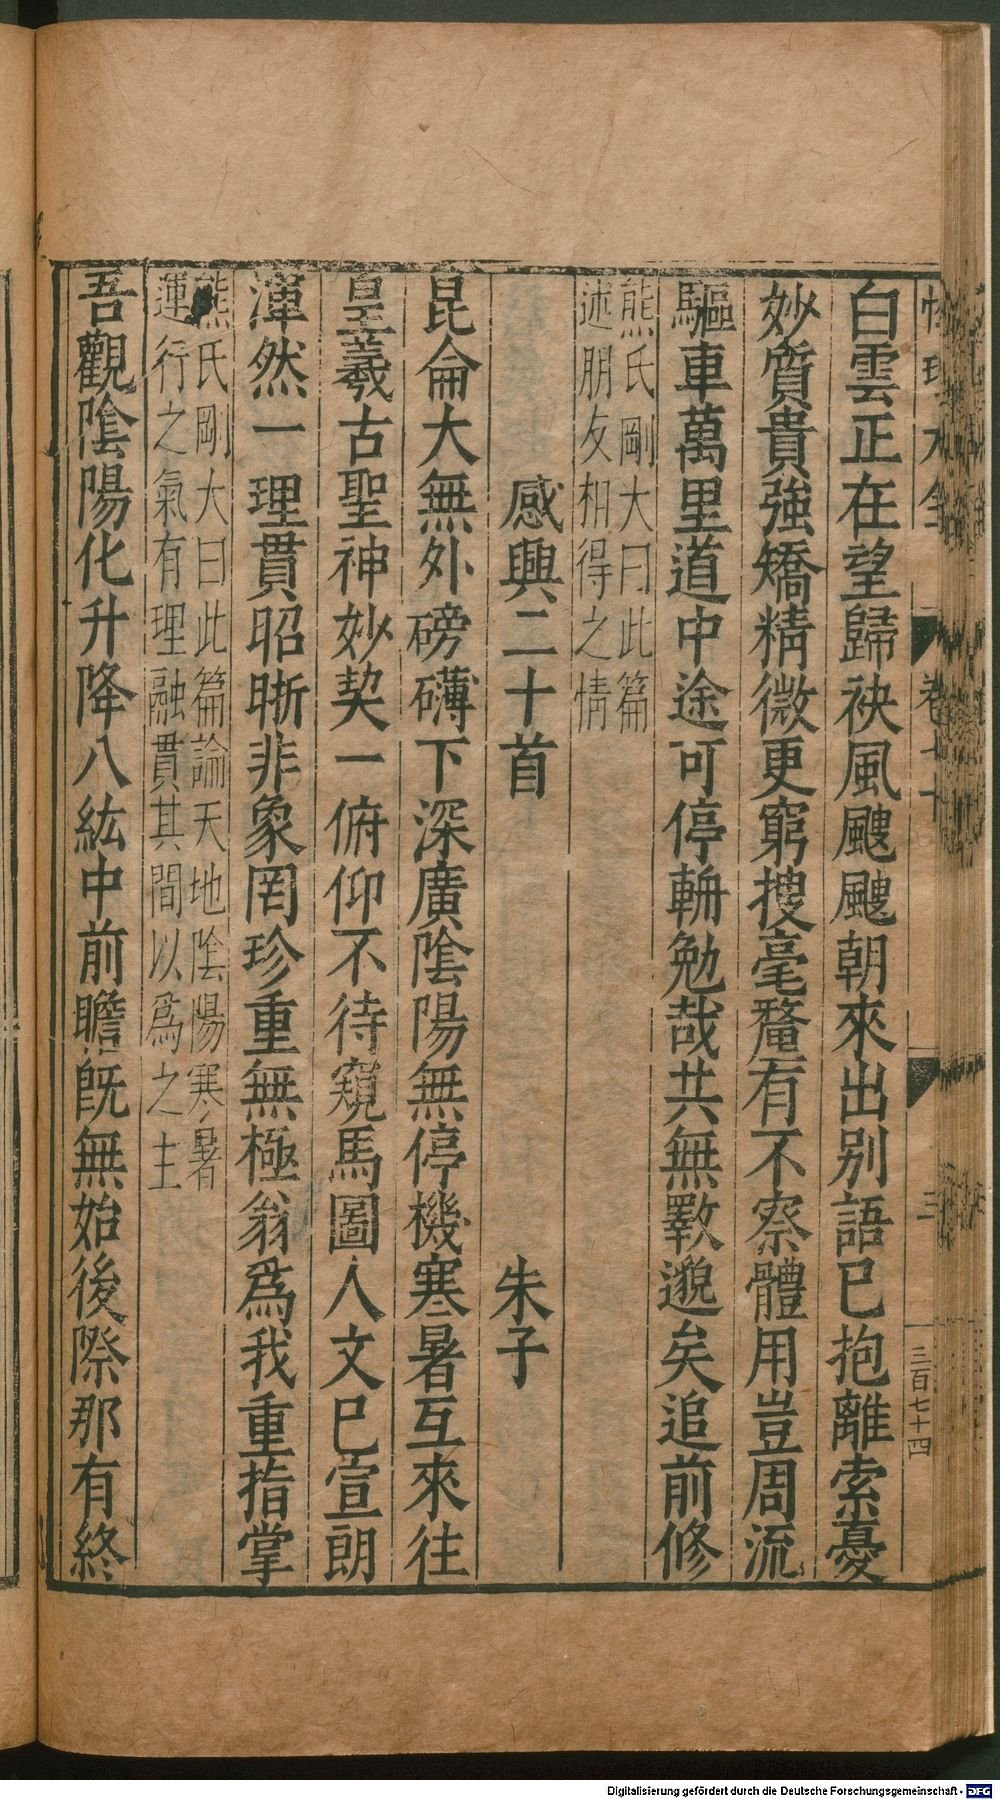 性理大全 卷七十 三 三百七十四
白雲正在望歸袂風颼颼朝來出别語已抱離索憂
妙質貴強矯精微更窮搜毫釐有不察體用豈周流
驅車萬里道中途可停輈勉哉共無斁邈矣追前修
熊氏剛大曰此篇
述朋友相得之情
感興二十首 朱子
昆侖大無外磅礴下深廣陰陽無停機寒暑互來往
皇羲古聖神妙契一俯仰不待窺馬圖人文已宣朗
渾然一理貫昭晣非象罔珍重無極翁爲我重指掌
熊氏剛大曰此篇論天地陰陽寒暑
運行之氣有理融貫其間以爲之主
吾觀陰陽化升降八紘中前瞻旣無始後際那有終
Digitalisierung gefördert durch die Deutsche Forschungsgemeinschaft - DFG